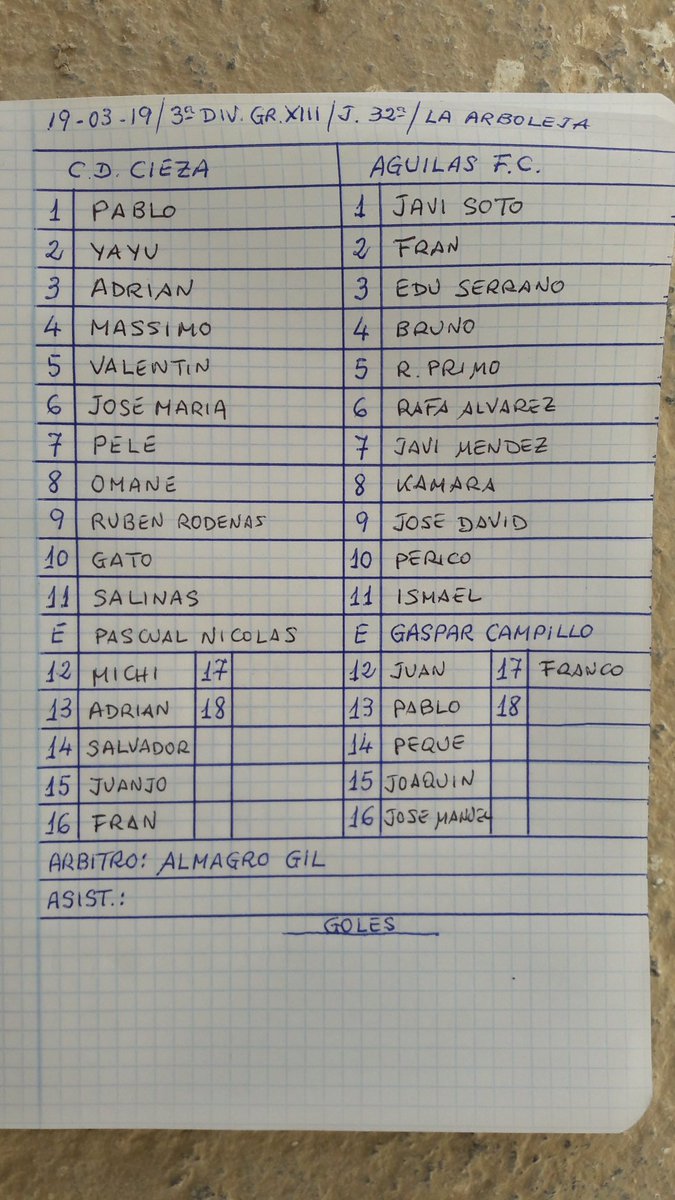 19-03-19/3ª DIV. GR.XIII/J. 32ª/LA ARBOLEJA
C.D. CIEZA AGUILAS F.C.
1 PABLO 1 JAVI SOTO
2 YAYU 2 FRAN
3 ADRIAN 3 EDU SERRANO
4 MASSIMO 4 BRUNO
5 VALENTIN 5 R. PRIMO
6 JOSE MARIA 6 RAFA ALVAREZ
7 PELE 7 JAVI MENDEZ
8 OMANE 8 KAMARA
9 RUBEN RODENAS 9 JOSE DAVID
10 GATO 10 PERICO
11 SALINAS 11 ISMAEL
E PASCUAL NICOLAS E GASPAR CAMPILLO
12 MICHI 17 12 JUAN 17 FRANCO
13 ADRIAN 18 13 PABLO 18
14 SALVADOR 14 PEQUE
15 JUANJO 15 JOAQUIN
16 FRAN 16 JOSE MANUEL
ARBITRO: ALMAGRO GIL
ASIST.:
GOLES